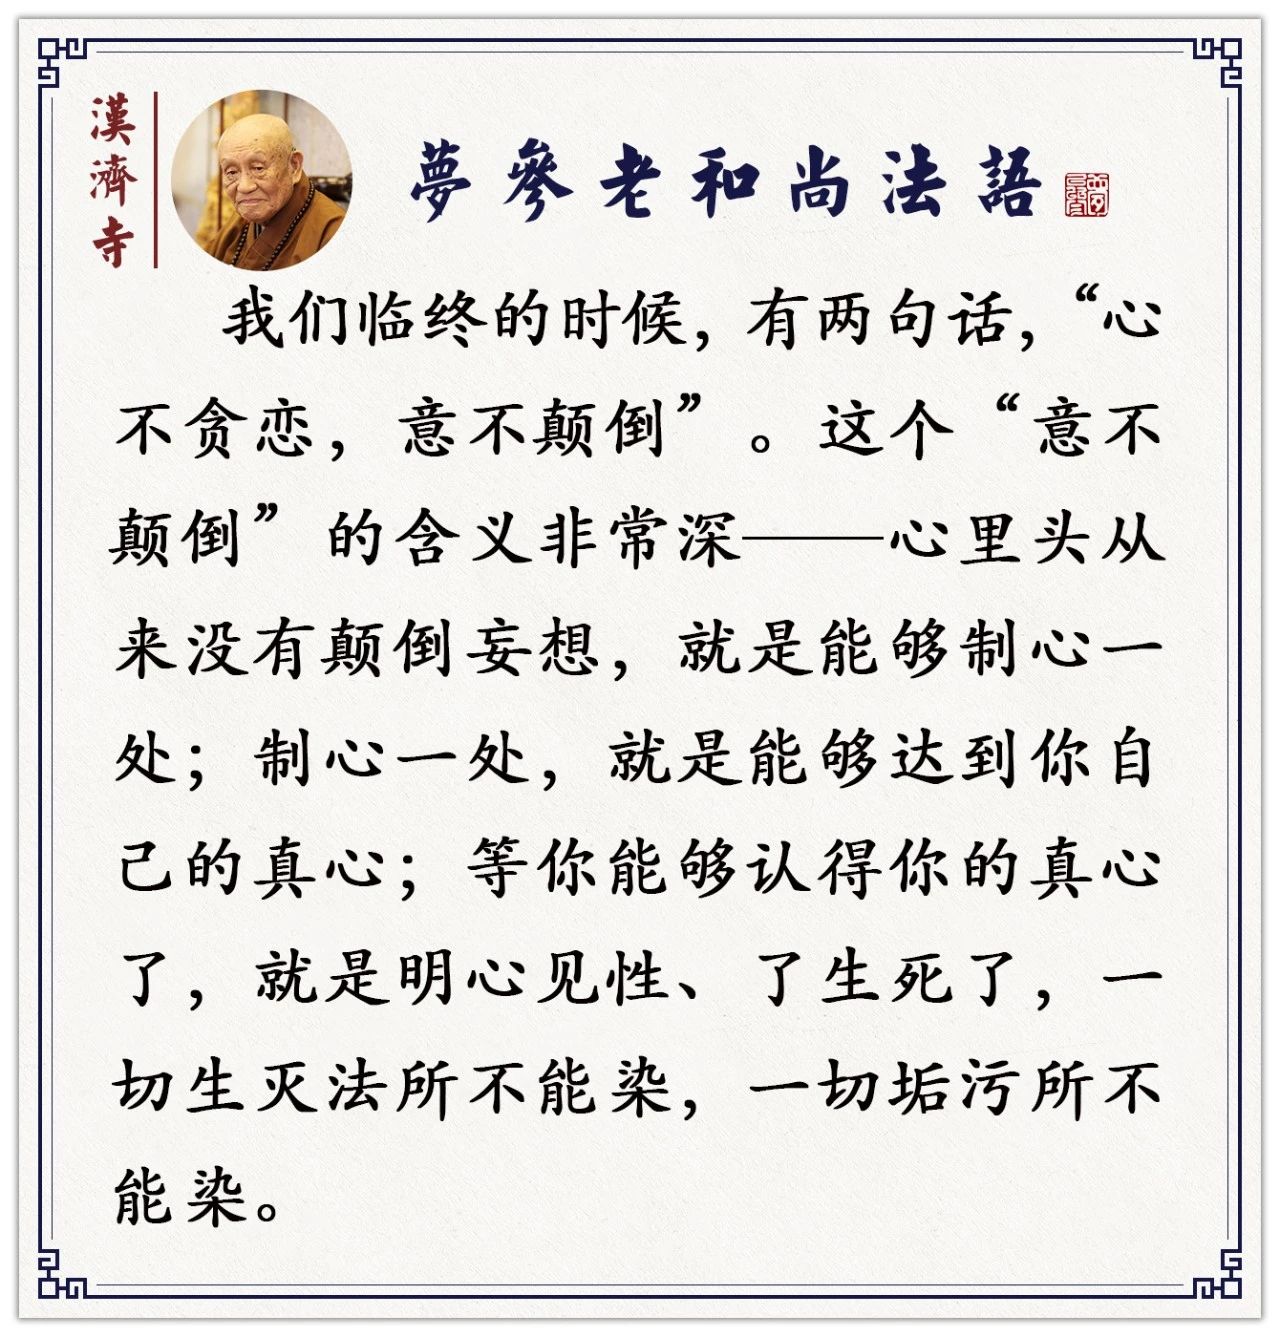 漢濟寺
夢參老和尚法語
我们临终的时候，有两句话，“心
不贪恋，意不颠倒”。这个“意不
颠倒”的含义非常深——心里头从
来没有颠倒妄想，就是能够制心一
处；制心一处，就是能够达到你自
己的真心；等你能够认得你的真心
了，就是明心见性、了生死了，一
切生灭法所不能染，一切垢污所不
能染。